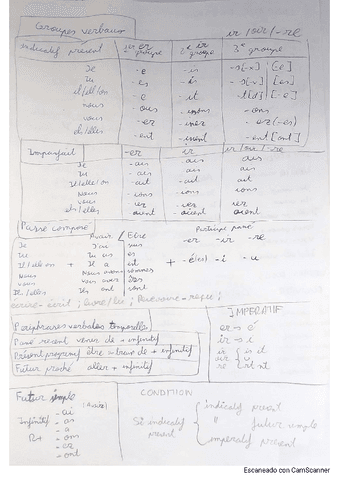 Groupes verbaux
ir / oir / -re
Indicatif présent 1er er groupe 2e ir groupe 3e groupe
Je -e -is -s[x] [e]
tu -es -is -s[x] [es]
il/ell/on -e -it -t[d] [-e]
nous -ons -issons -ons
vous -ez
els/elles -ent -issent -ent [ont]
Imparfait -er ir ir/oir/-re
Je -ais -ais ais
tu -ais -ais -ais
il/elle/on -ait -ait -ait
Nous -ions -ions ions
vous -iez -iez
els/elles
Passé composé Avoir Etre Participe passé
Je J'ai suis -er -ir -re
Tu Tu as es
Il/elle/on + Il a est + -é(es) -i -u
Nous Nous avons sommes
vous vous avez
Ils/elles Ils ont sont
ecrire - écrit ;
Périphrases verbales temporelles
IMPERATIF
Passé récent venir de + infinitif
er → é
Présent progressif être en train de + infinitif
Futur proche aller + infinitif
Futur simple
(Avoir)
CONDITION
- ai
Infinitif - as
R + - a
- ons
- ez
- ont
Si indicatif présent
indicatif présent
" futur simple
imperatif présent
Escaneado con CamScanner